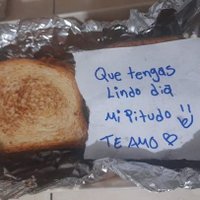 Que tengas
Lindo dia
Mi Pitudo
TE AMO